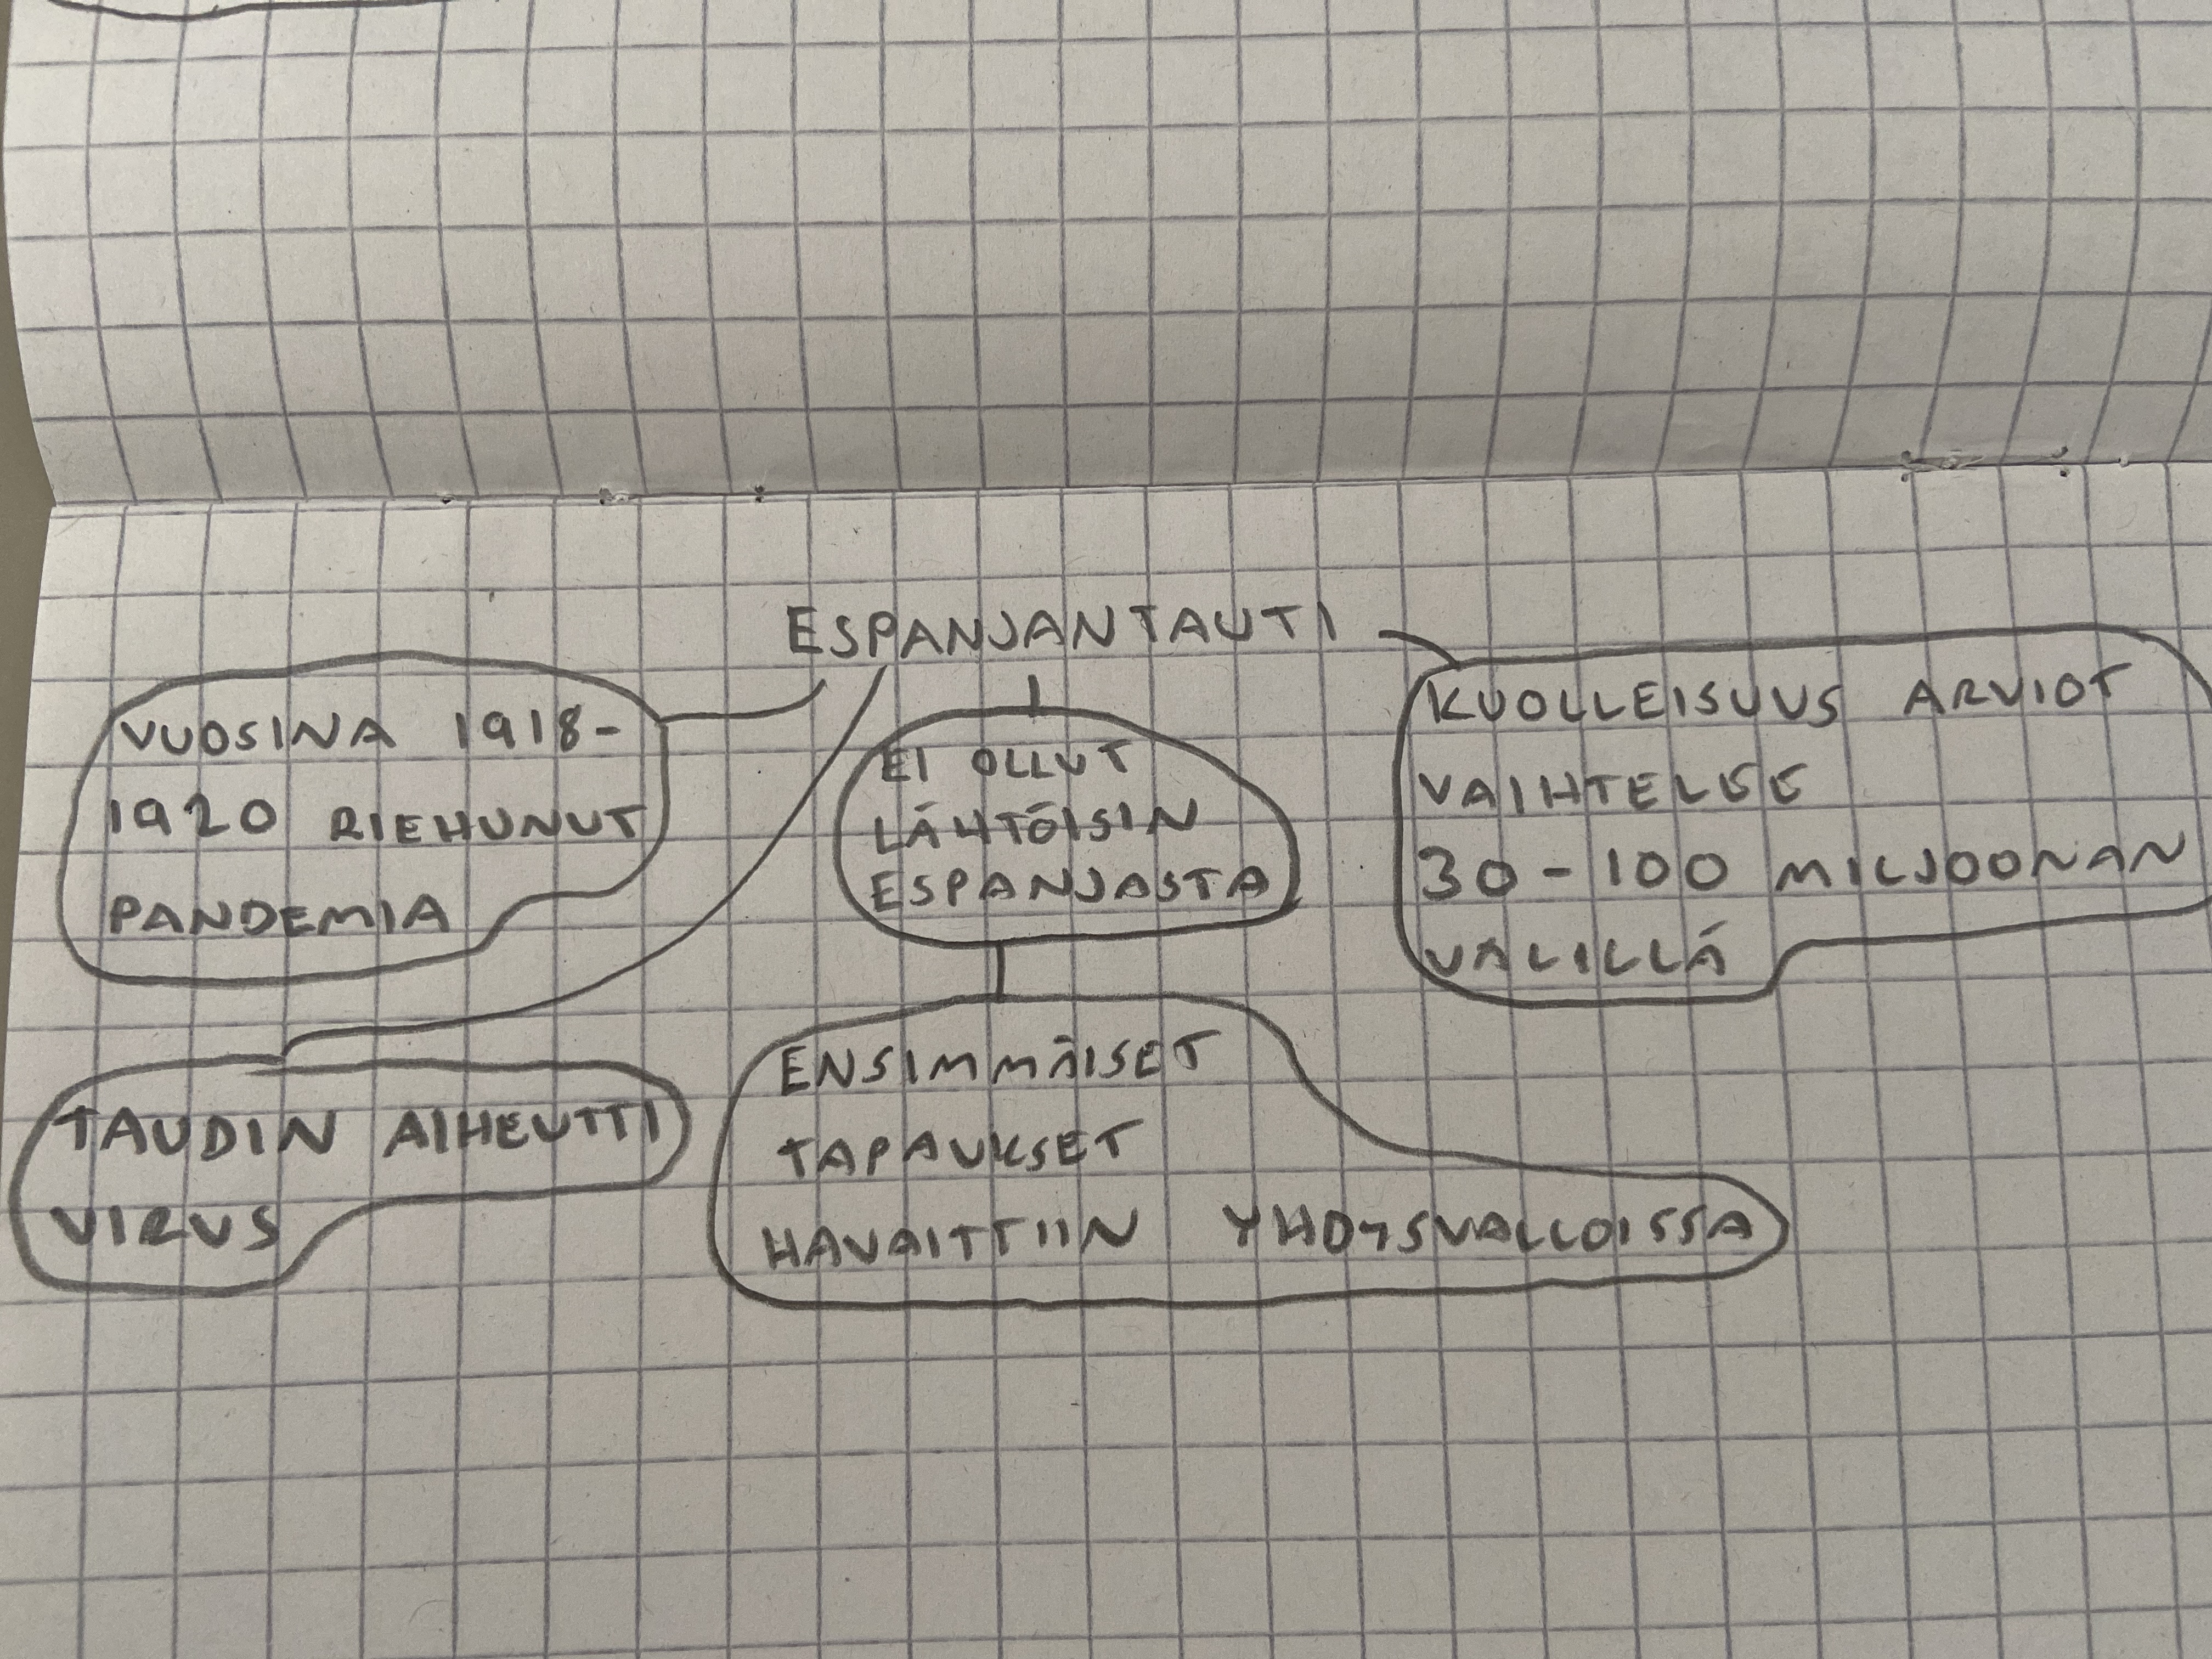 ESPANJANTAUTI
VUOSINA 1918-
1920 RIEHUNUT
PANDEMIA
EI OLLUT
LÄHTÖISIN
ESPANJASTA
KUOLLEISUUS ARVIOT
VAIHTELEE
30-100 MILJOONAN
VALILLÄ
TAUDIN AIHEUTTI
VIRUS
ENSIMMÄISET
TAPAUKSET
HAVAITTIIN YHDYSVALLOISSA